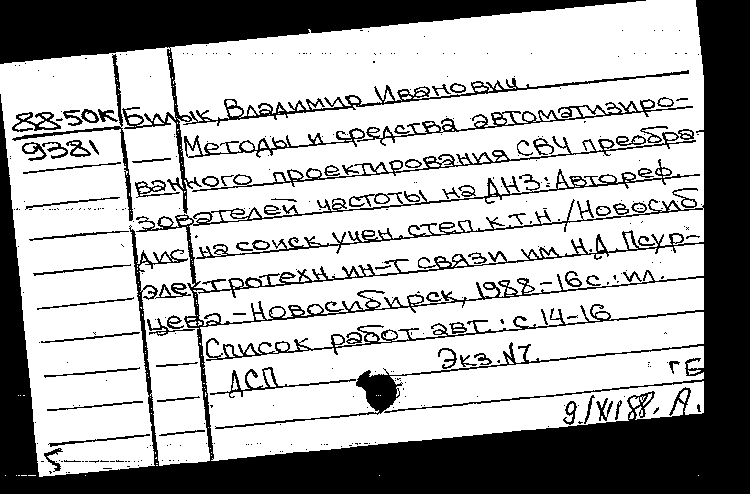 88-50К Билык, Владимир Иванович.
9381 Методы и средства автоматизиро-
ванного проектирования СВЧ преобра-
зователей частоты на ДНЗ: Автореф.
дис на соиск. учен. степ. к.т.н. / Новосиб.
электротехн. ин-т связи им. Н.Д. Псур-
цева. - Новосибирск, 1988. - 16 с.: ил.
Список работ авт.: с. 14-16
ДСП Экз. №7.
ГБ
9/XI 88. А.
5